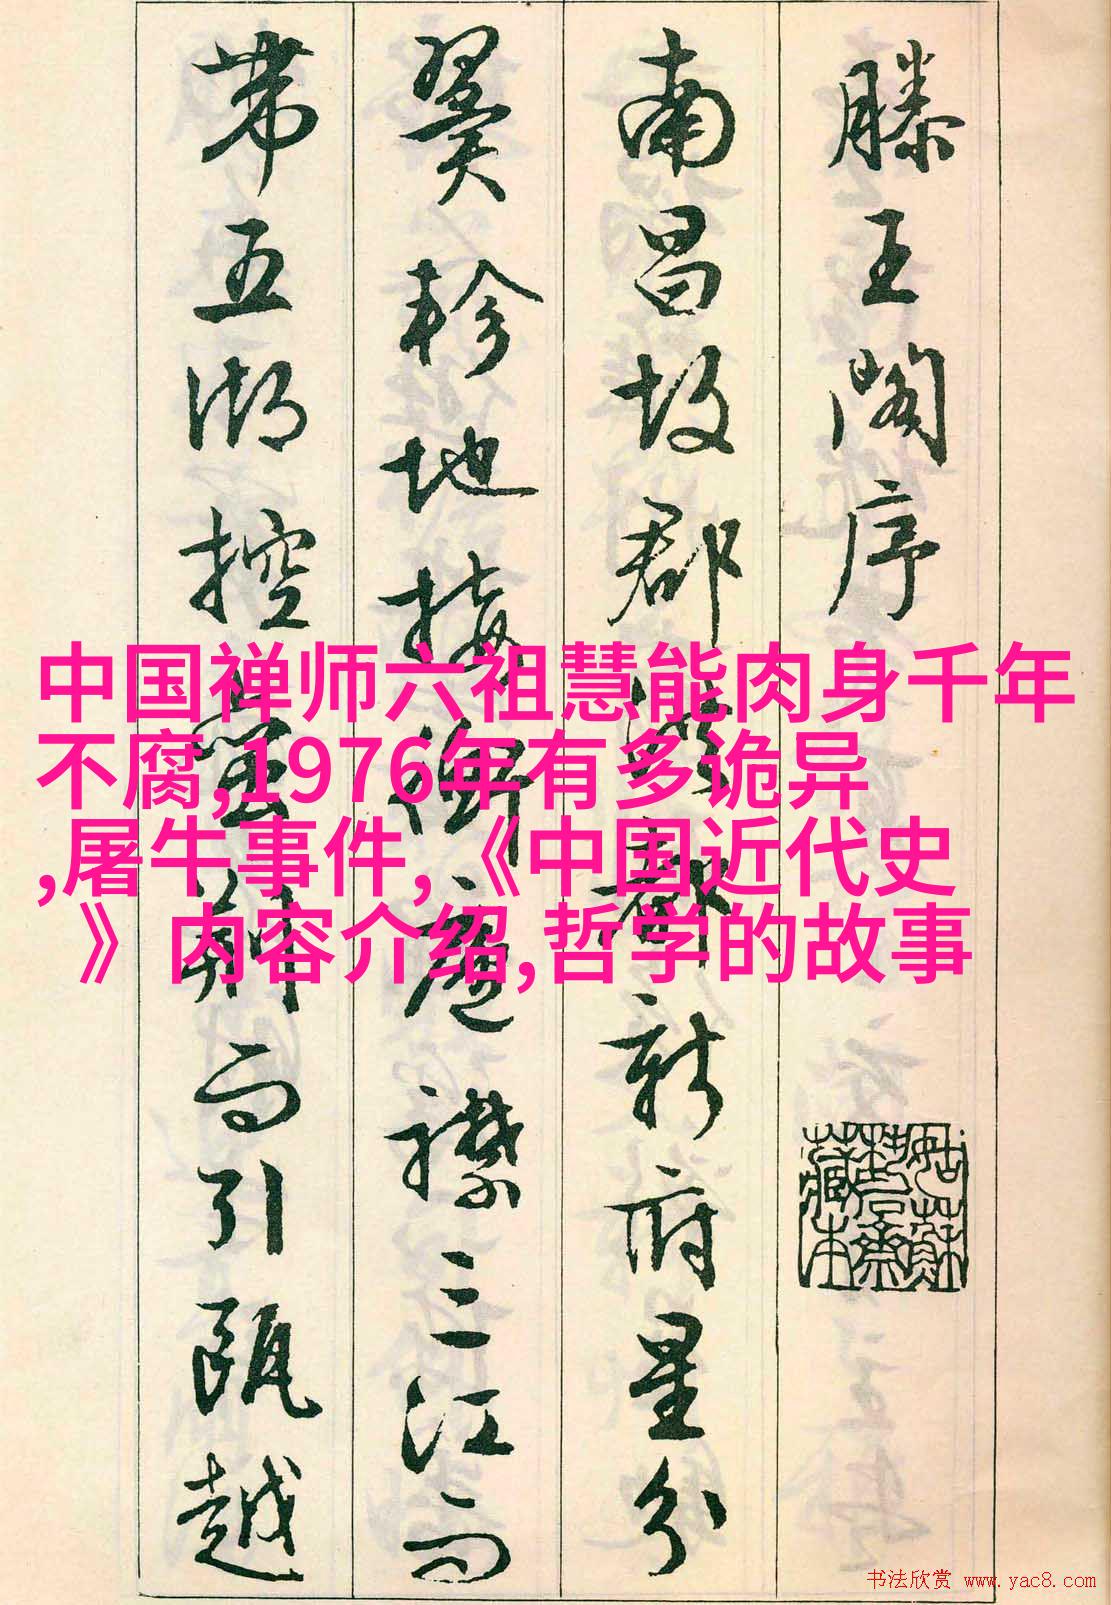 滕王閣序
南昌故郡洪都新府星分
翼軫地接衡廬襟三江而
帶五湖控蠻荊而引甌越
中国禅师六祖慧能肉身千年
不腐,1976年有多诡异
,屠牛事件,《中国近代史
》内容介绍,哲学的故事
书法欣赏 www.yac8.com